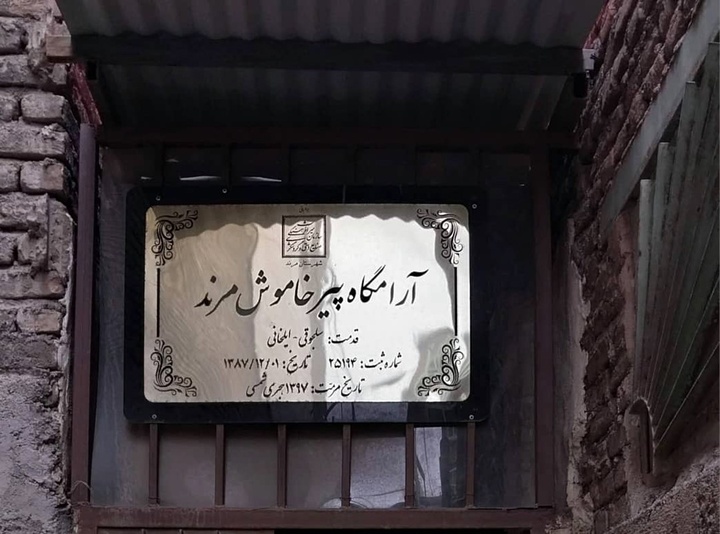 شهرستان مرند
آرامگاه پیر خاموش مرند
قدمت: سلجوقی - ایلخانی
شماره ثبت: ۲۵۱۹۴ تاریخ: ۱۳۸۷/۱۲/۰۱
تاریخ مرمت: ۱۳۹۷ هجری شمسی